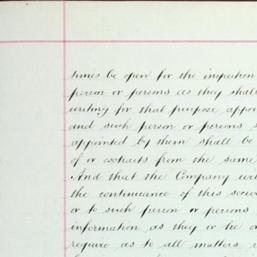 times be open for the inspection
person or persons as they shall
writing for that purpose appoi
and such person or persons s
appointed by them shall be
of or extracts from the same
And that the Company wil
the continuance of this secu
or to such person or persons
information as they or he o
require as to all matters